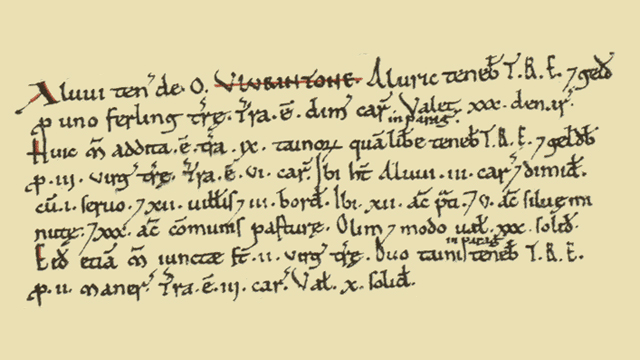 Aluui ten' de. O. VLVRINTONE. Aluric teneb̄ T.R.E. ⁊ geld̄
ꝓ uno ferling trę. Tra.ē. dim' car̄. Valet. xxx. denar̄.
Huic m̄ addita.ē. tra. ix. tainoꝝ in parag̃. quā libe teneb̄ T.R.E. ⁊ geldb̄
ꝓ.iii. virg' trę. Tra.ē. vi. car̄. Ibi ht̄ Aluui. iii. car̄ ⁊ dimid̄.
cū.i. seruo. ⁊ xii. uill'is ⁊ iii. bord̄. Ibi. xii. ac̄ p̃ti. ⁊ v. ac̄ siluę mi
nutę. ⁊ xxx. ac̄ com̄unis pasturę. Olim ⁊ modo ual̄. xxx. solid̄.
Eid̄ etiā m̄ iunctae st̄. ii. virg' trę. Duo taini in parag̃ teneb̄ T.R.E.
ꝓ.ii. maner̄. Tra.ē.iii. car̄. Val̄. x. solid̄.